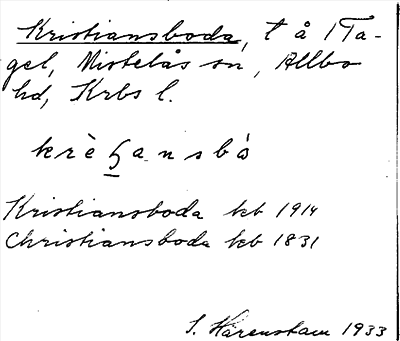 Kristiansboda, t å 1 Ta-
gel, Mistelås sn, Allbo
hd, Krbs l.
krè ꞕansbå
Kristiansboda kb 1914
Christiansboda kb 1831
S. Hårenstam 1933